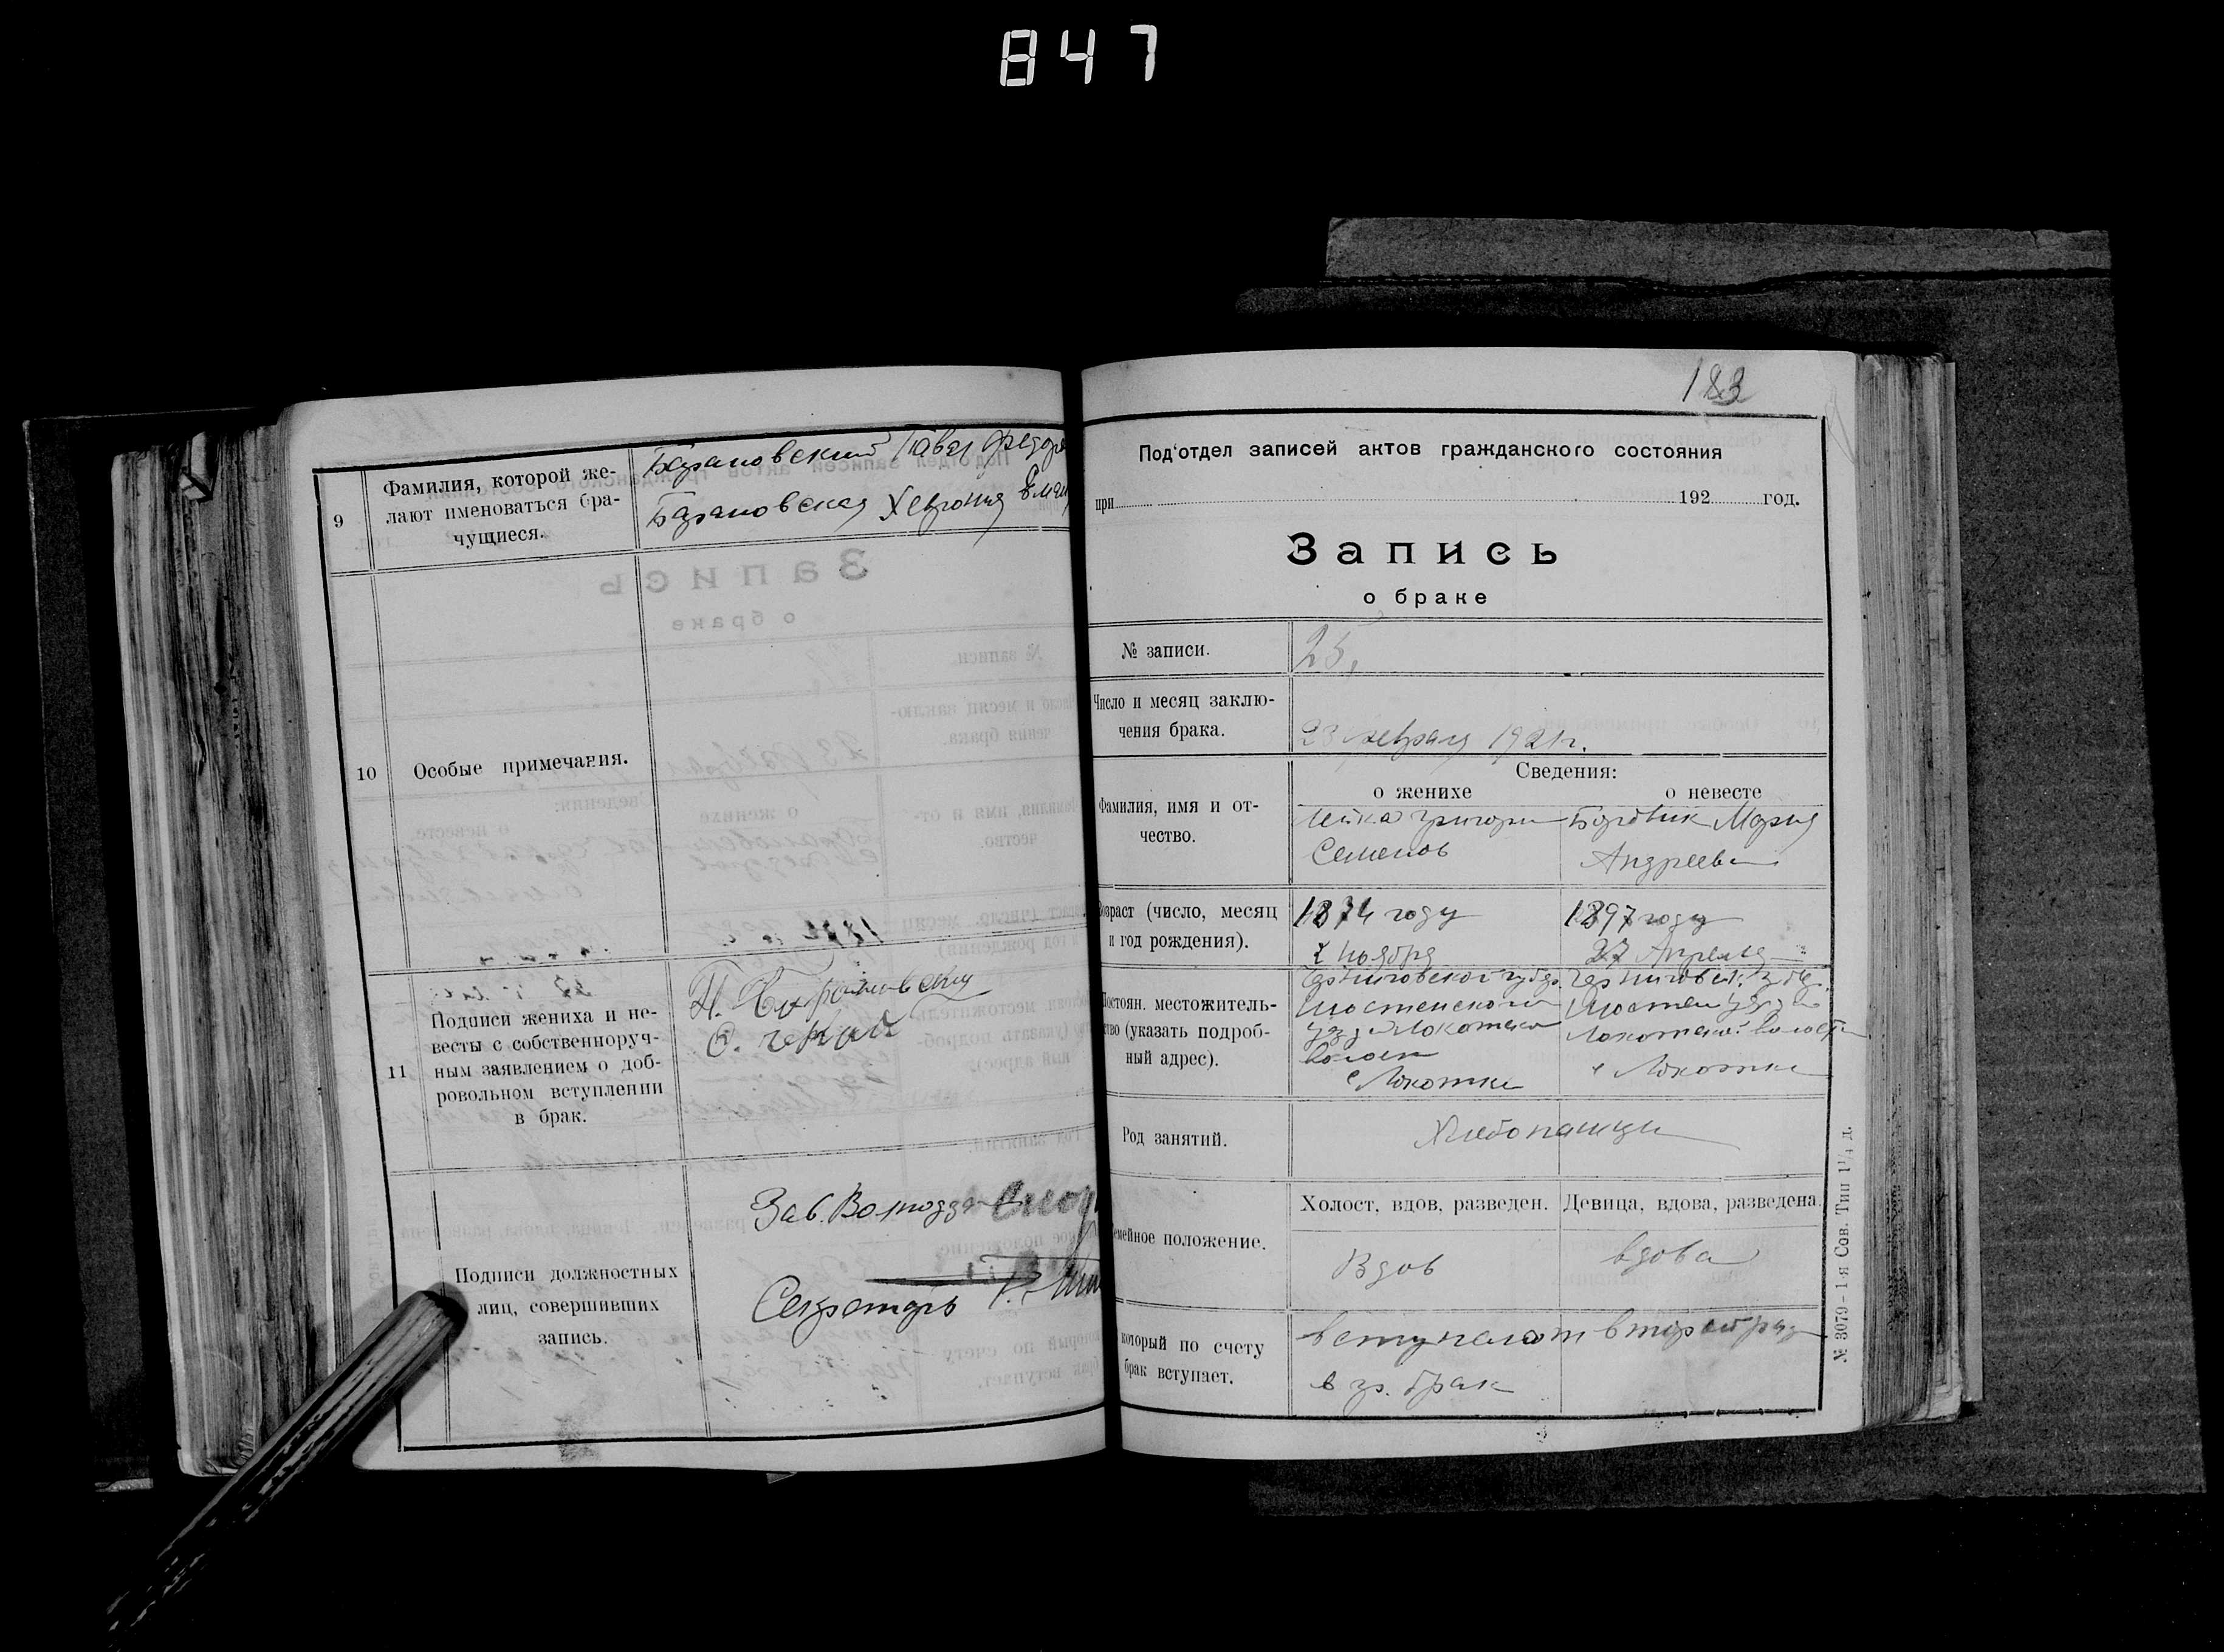 847
9
Фамилия, которой же-
лают именоваться бра-
чущиеся.
Барановский Павел Федоро
Барановская Хеврония Емел
10
Особые примечания.
11
Подписи жениха и не-
весты с собственноруч-
ным заявлением о доб-
ровольном вступлении
в брак.
П. Барановский
Подписи должностных
лиц, совершивших
запись.
Зав.
Секретарь
183
Под'отдел записей актов гражданского состояния
при 192 год.
Запись
о браке
№ записи.
25,
Число и месяц заклю-
чения брака.
23 февраля 1921 г.
Сведения:
о женихе о невесте
Фамилия, имя и от-
чество.
Григори
Семенов
Боровик Мария
Андреевн
Возраст (число, месяц
и год рождения).
1874 году
2 ноября
1897 году
27 Апреля
Постоян. местожитель-
ство (указать подроб-
ный адрес).
Черниговской губ.
Шостенского
уезд Локотско
волости
с Локотки
Черниговск. губ.
Шостен уезд
Локотской волости
с Локотки
Род занятий.
Хлебопашци
Семейное положение.
Холост, вдов, разведен.
Девица, вдова, разведена.
Вдов
вдова
который по счету
брак вступает.
вступают второй раз
в гр. брак
№ 3079 – 1-я Сов. Тип 1¹/₄ д.